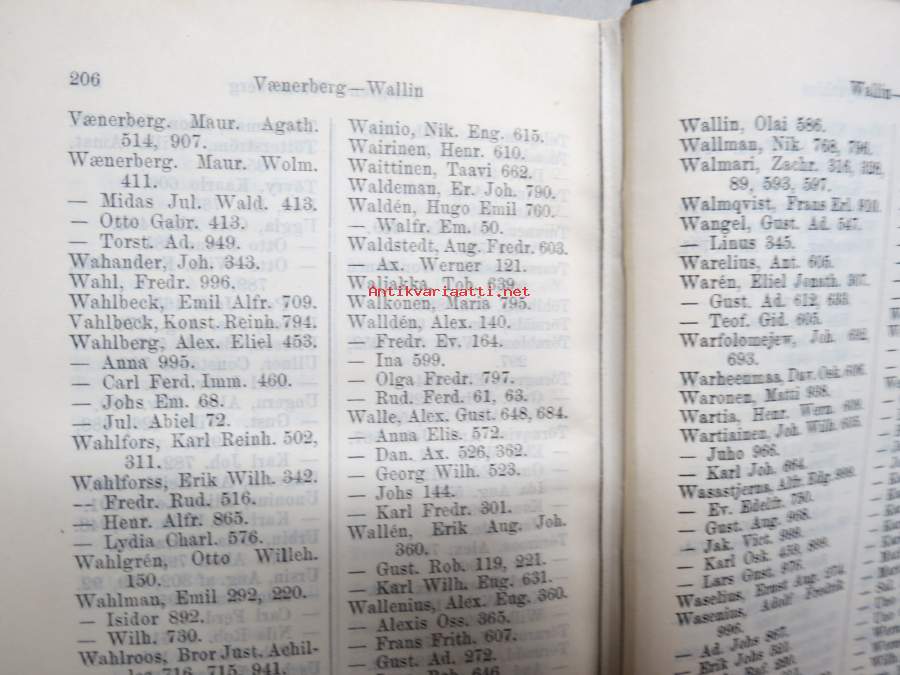 206
Vænerberg—Wallin
Vænerberg. Maur. Agath.
514, 907.
Wænerberg. Maur. Wolm.
411.
— Midas Jul. Wald. 413.
— Otto Gabr. 413.
— Torst. Ad. 949.
Wahander, Joh. 343.
Wahl, Fredr. 996.
Wahlbeck, Emil Alfr. 709.
Vahlbeck, Konst. Reinh. 794.
Wahlberg, Alex. Eliel 453.
— Anna 995.
— Carl Ferd. Imm. 460.
— Johs Em. 68.
— Jul. Abiel 72.
Wahlfors, Karl Reinh. 502,
311.
Wahlforss, Erik Wilh. 342.
— Fredr. Rud. 516.
— Henr. Alfr. 865.
— Lydia Charl. 576.
Wahlgrén, Otto Willeh.
150.
Wahlman, Emil 292, 220.
— Isidor 892.
— Wilh. 730.
Wahlroos, Bror Just. Achil-
les 716, 715, 941.
Wainio, Nik. Eng. 615.
Wairinen, Henr. 610.
Waittinen, Taavi 662.
Waldeman, Er. Joh. 790.
Waldén, Hugo Emil 760.
— Walfr. Em. 50.
Waldstedt, Aug. Fredr. 603.
— Ax. Werner 121.
Waljakka, Tob. 639.
Antikvariaatti.net
Walkonen, Maria 795.
Walldén, Alex. 140.
— Fredr. Ev. 164.
— Ina 599.
— Olga Fredr. 797.
— Rud. Ferd. 61, 63.
Walle, Alex. Gust. 648, 684.
— Anna Elis. 572.
— Dan. Ax. 526, 362.
— Georg Wilh. 523.
— Johs 144.
— Karl Fredr. 301.
Wallén, Erik Aug. Joh.
360.
— Gust. Rob. 119, 221.
— Karl Wilh. Eug. 631.
Wallenius, Alex. Eug. 360.
— Alexis Oss. 365.
— Frans Frith. 607.
— Gust. Ad. 272.
Rob. 646
Wallin—
Wallin, Olai 586.
Wallman, Nik. 768, 796.
Walmari, Zachr. 316,
89, 593, 597.
Walmqvist, Frans Erl.
Wangel, Gust. Ad. 547.
— Linus 345.
Warelius, Ant. 605.
Warén, Eliel Jonath.
— Gust. Ad. 612,
— Teof. Gid. 605.
Warfolomejew, Joh.
693.
Warheenmaa, Dav. Osk. 606.
Waronen, Matti
Wartia, Henr. Wern.
Wartiainen, Joh. Wilh.
— Juho 966.
— Karl Joh. 664.
Wasastjerna, Alfr. Edg.
— Ev. Edelft. 780.
— Gust. Aug. 968.
— Jak. Vict.
— Karl Osk.
— Lars Gust. 976.
Waselius, Ernst Aug.
Wasenius, Adolf Fredrik
996.
— Ad. Johs
— Erik Johs